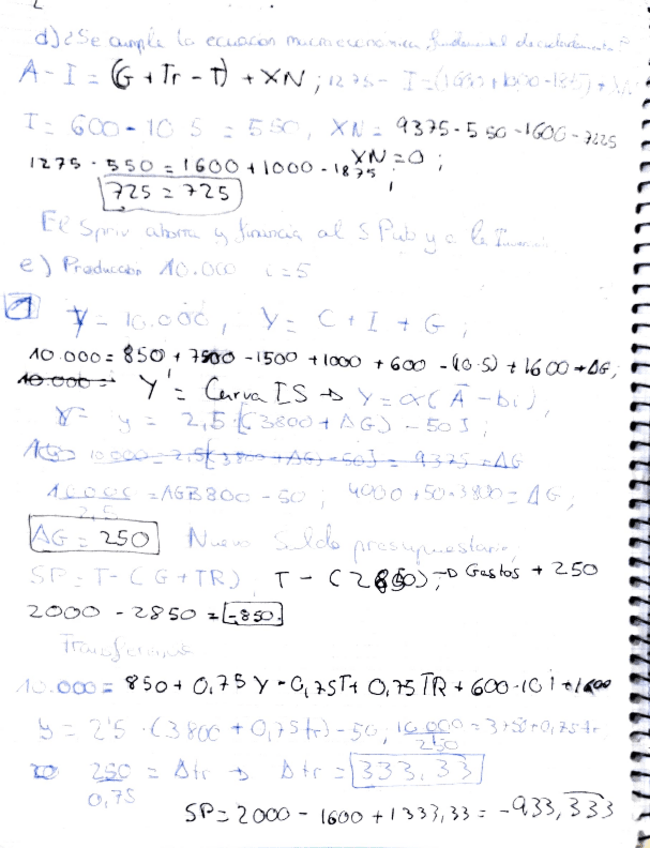 d) ¿Se cumple la ecuacion macroeconómica fundamental
A - I = (G + Tr - T) + XN ; 1275 - I = (1600 + 1000 - 1875) +
I = 600 - 10·5 = 550, XN = 9375 - 550 - 1600 - 7225
XN = 0 ;
1275 - 550 = 1600 + 1000 - 1875 ;
725 = 725
El Spriv ahorra y financia al S Pub y a la
e) Producción 10.000 i = 5
1 Y = 10.000, Y = C + I + G ;
10.000 = 850 + 7500 - 1500 + 1000 + 600 - (10·5) + 1600 + ΔG ;
10.000 = Y' = Curva IS → Y = α(Ā - bi),
Y = y = 2,5·[(3800 + ΔG) - 50] ;
10.000 = 2,5[(3800 + ΔG) - 50] = 9375 = ΔG
10.000/2,5 = ΔG 3800 - 50 ; 4000 + 50 - 3800 = ΔG ;
ΔG = 250 Nuevo Saldo presupuestario,
SP = T - (G + TR), T - (2850) → Gastos + 250
2000 - 2850 = -850
10.000 = 850 + 0,75 Y - 0,75T + 0,75 TR + 600 - 10 i + 1600
y = 2'5 · (3800 + 0,75tr) - 50 ; 10.000/2'50 = 3750 + 0,75tr
250/0,75 = Δtr → Δtr = 333,33
SP = 2000 - 1600 + 1333,33 = -933,333